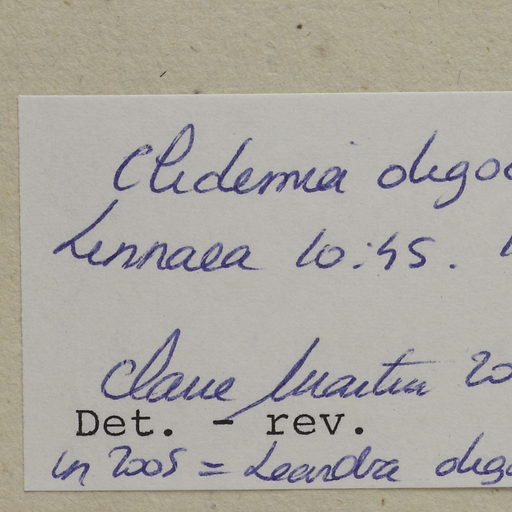 Clidemia oligoc
Linnaea 10:45.
Claue Martin 20
Det. - rev.
in 2005 = Leandra oligo